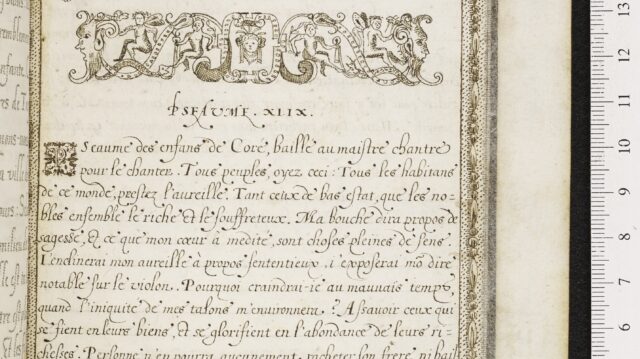 PSEAUME. XLIX.
PSeaume des enfans de Coré, baillé au maistre chantre
pour le chanter. Tous peuples, oyez ceci: Tous les habitans
de ce monde, prestez l'aureille. Tant ceux de bas estat, que les no-
bles ensemble le riche et le souffreteux. Ma bouche dira propos de
sagesse, et ce que mon cœur a medité, sont choses pleines de sens.
I'enclinerai mon aureille à propos sententieux, i'exposerai mõ dire
notable sur le violon. Pourquoi craindrai-ie au mauuais temps,
quand l'iniquité de mes talons m'environnera? Assavoir ceux qui
se fient en leurs biens, et se glorifient en l'abondance de leurs ri-
chesses. Personne n'en pourra aucunement, racheter son frere ni bail
13
12
11
10
9
8
7
6